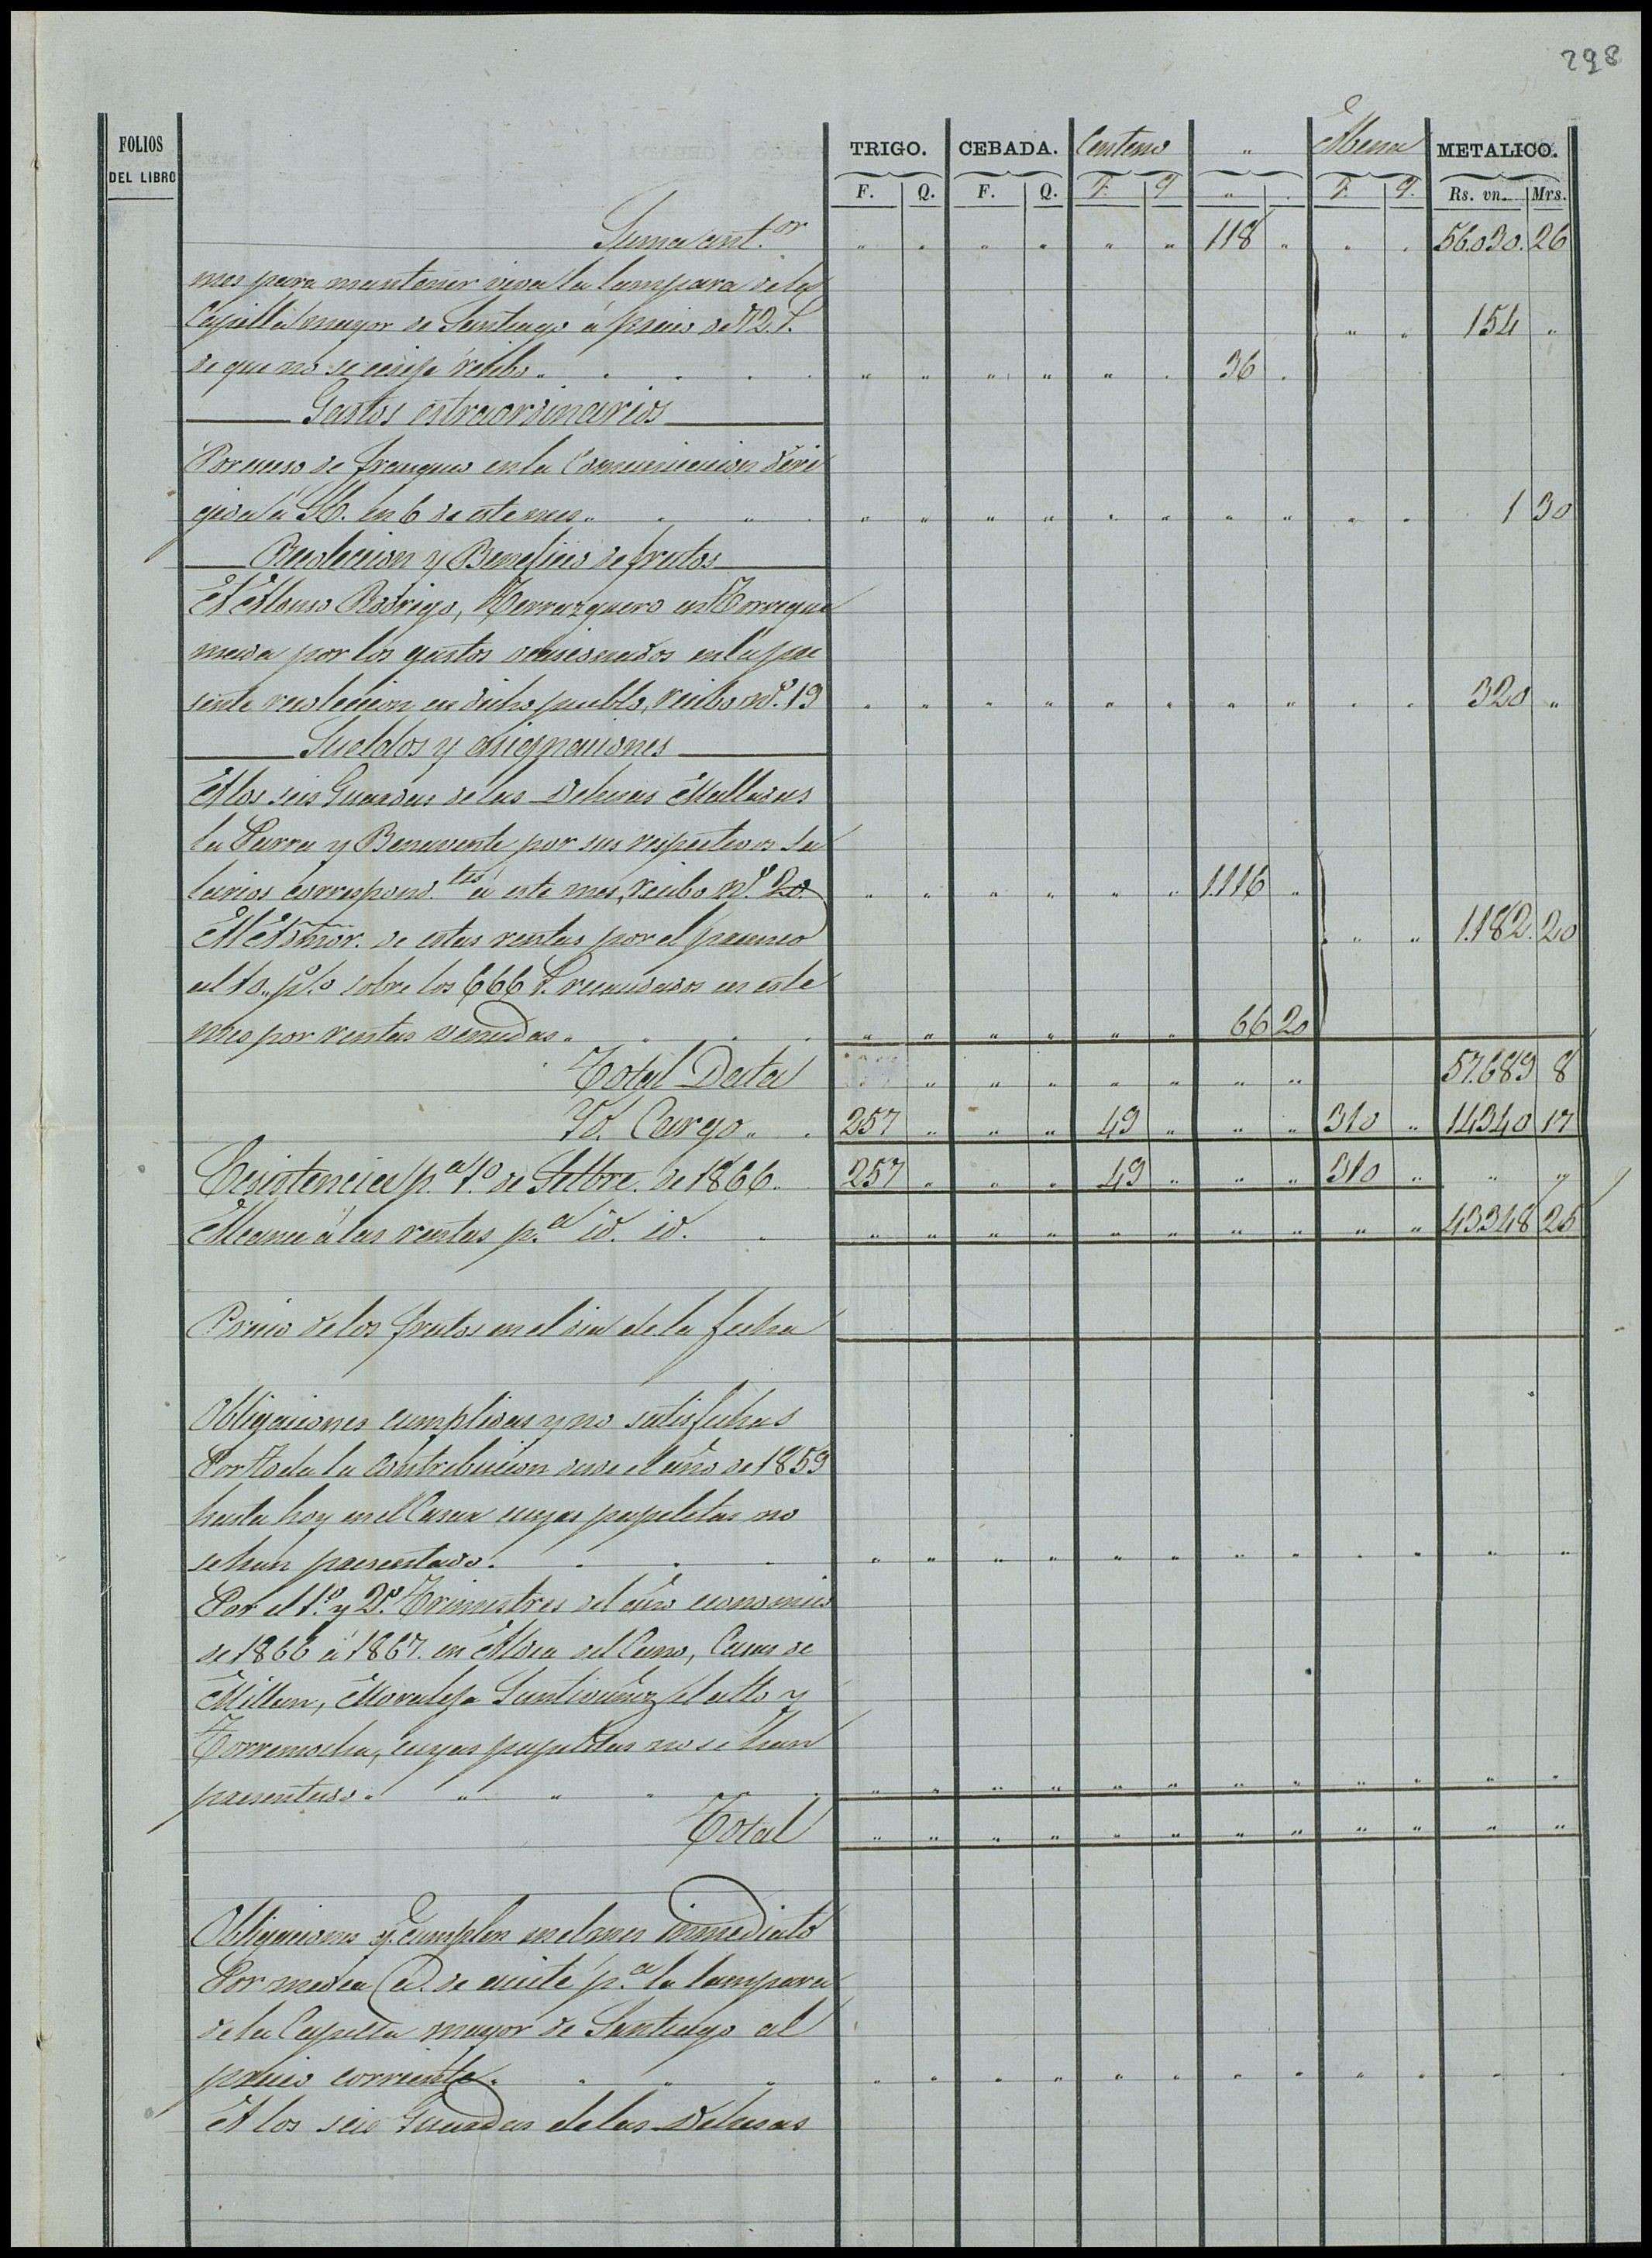 298
FOLIOS DEL LIBRO
TRIGO. CEBADA. Centeno " Abena METALICO.
F. Q. F. Q. F. Q " . F. Q. Rs. vn. Mrs.
Suma ant.or " " " " " " 118 " " " 56.030. 26
mes para mantener viva la lampara de la
Capilla mayor de Santiago á precio de 72 r. " " 154 "
de que no se exige recibo " " " " " " 36 "
Gastos estraordinarios
Por eceso de franqueo en la Comunicacion diri
gida á M. en 6 de este mes " " " " " " " " " " 1 30
Recoleccion y Beneficio de frutos
A Alonso Rodrigo, Terrazguero en Torreque
mada por los gastos ocasionados en la pre
sente recoleccion en dicho pueblo, recibo nº. 19 " " " " " " " " " " 320 "
Sueldos y asignaciones
A los seis Guardas de las Dehesas Malladas
la Parra y Benavente por sus respectivos sa
larios correspond.tes á este mes, recibo nº. 20. " " " " " " 1.116 "
Al Admor. de estas rentas por el premio " " 1.182. 20
al 10 p% sobre los 666 r. recaudados en este
mes por rentas vencidas " " " " " " 66 20
Total Data " " " " " " " 57.689 8
Yd. Cargo 257 " " " 49 " " " 310 " 14340 17
Ecsistencia p.a 1º de Setbre. de 1866. 257 " " " 49 " " " 310 " " "
Alcance á las rentas p.a id. id. " " " " " " " " " " 43348 25
Precio de los frutos en el dia de la fecha
Obligaciones cumplidas y no satisfechas
Por toda la contribucion desde el año de 1859
hasta hoy en el Casar cuyas papeletas no
se han presentado. " " " " " " " " " " " "
Por el 1º. y 2º. Trimestres del año economico
de 1866 á 1867. en Aldea del Cano, Casas de
Millan, Moraleja Santivañez el alto y
Torremocha, cuyas papeletas no se han
presentado " " " " " " " " " " " "
Total " " " " " " " " " " " "
Obligaciones q. cumplen en el mes inmediato
Por media @. de aceite p.a la lampara
de la Capilla mayor de Santiago al
precio corriente " " " " " " " " " " " "
A los seis Guardas de las Dehesas